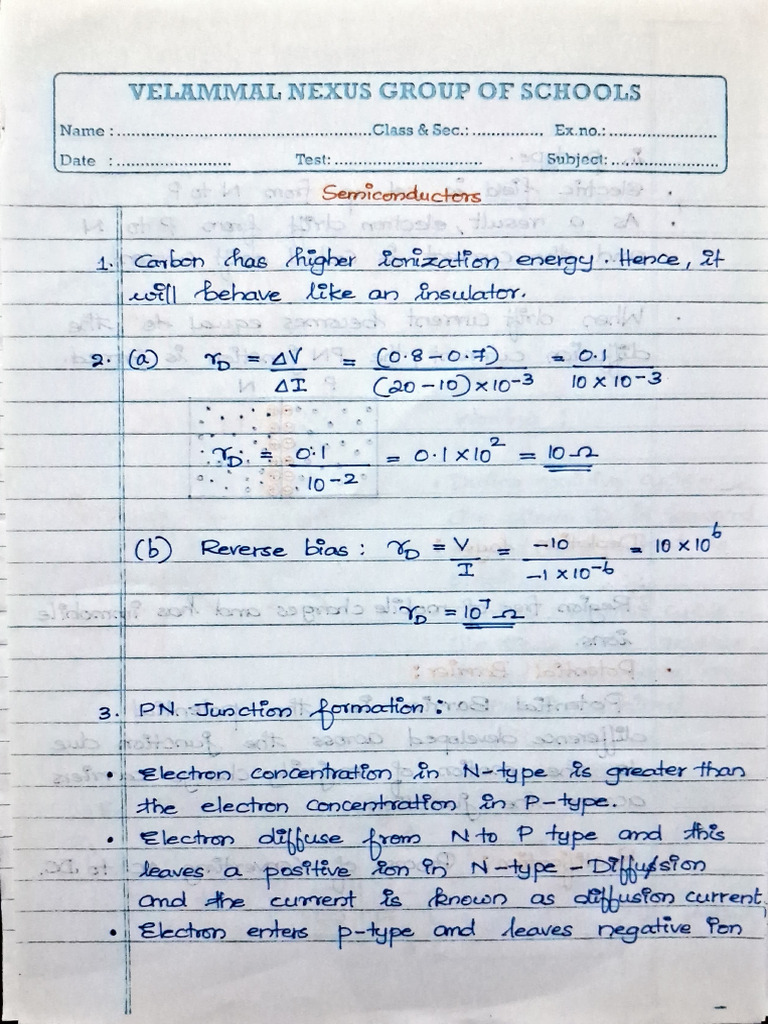 VELAMMAL NEXUS GROUP OF SCHOOLS
Name : ............ Class & Sec.: ............ Ex.no.: ............
Date : ............ Test: ............ Subject: ............
Semiconductors
1. Carbon has higher ionization energy. Hence, it
will behave like an insulator.
2. (a) r_D = ΔV/ΔI = (0.8-0.7)/((20-10)×10^-3) = 0.1/(10×10^-3)
r_D = 0.1/10^-2 = 0.1×10^2 = 10Ω
(b) Reverse bias : r_D = V/I = -10/(-1×10^-6) = 10×10^6
r_D = 10^7 Ω
3. PN Junction formation :
• Electron concentration in N-type is greater than
the electron concentration in P-type.
• Electron diffuse from N to P type and this
leaves a positive ion in N-type - Diffusion
and the current is known as diffusion current,
• Electron enters p-type and leaves negative ion